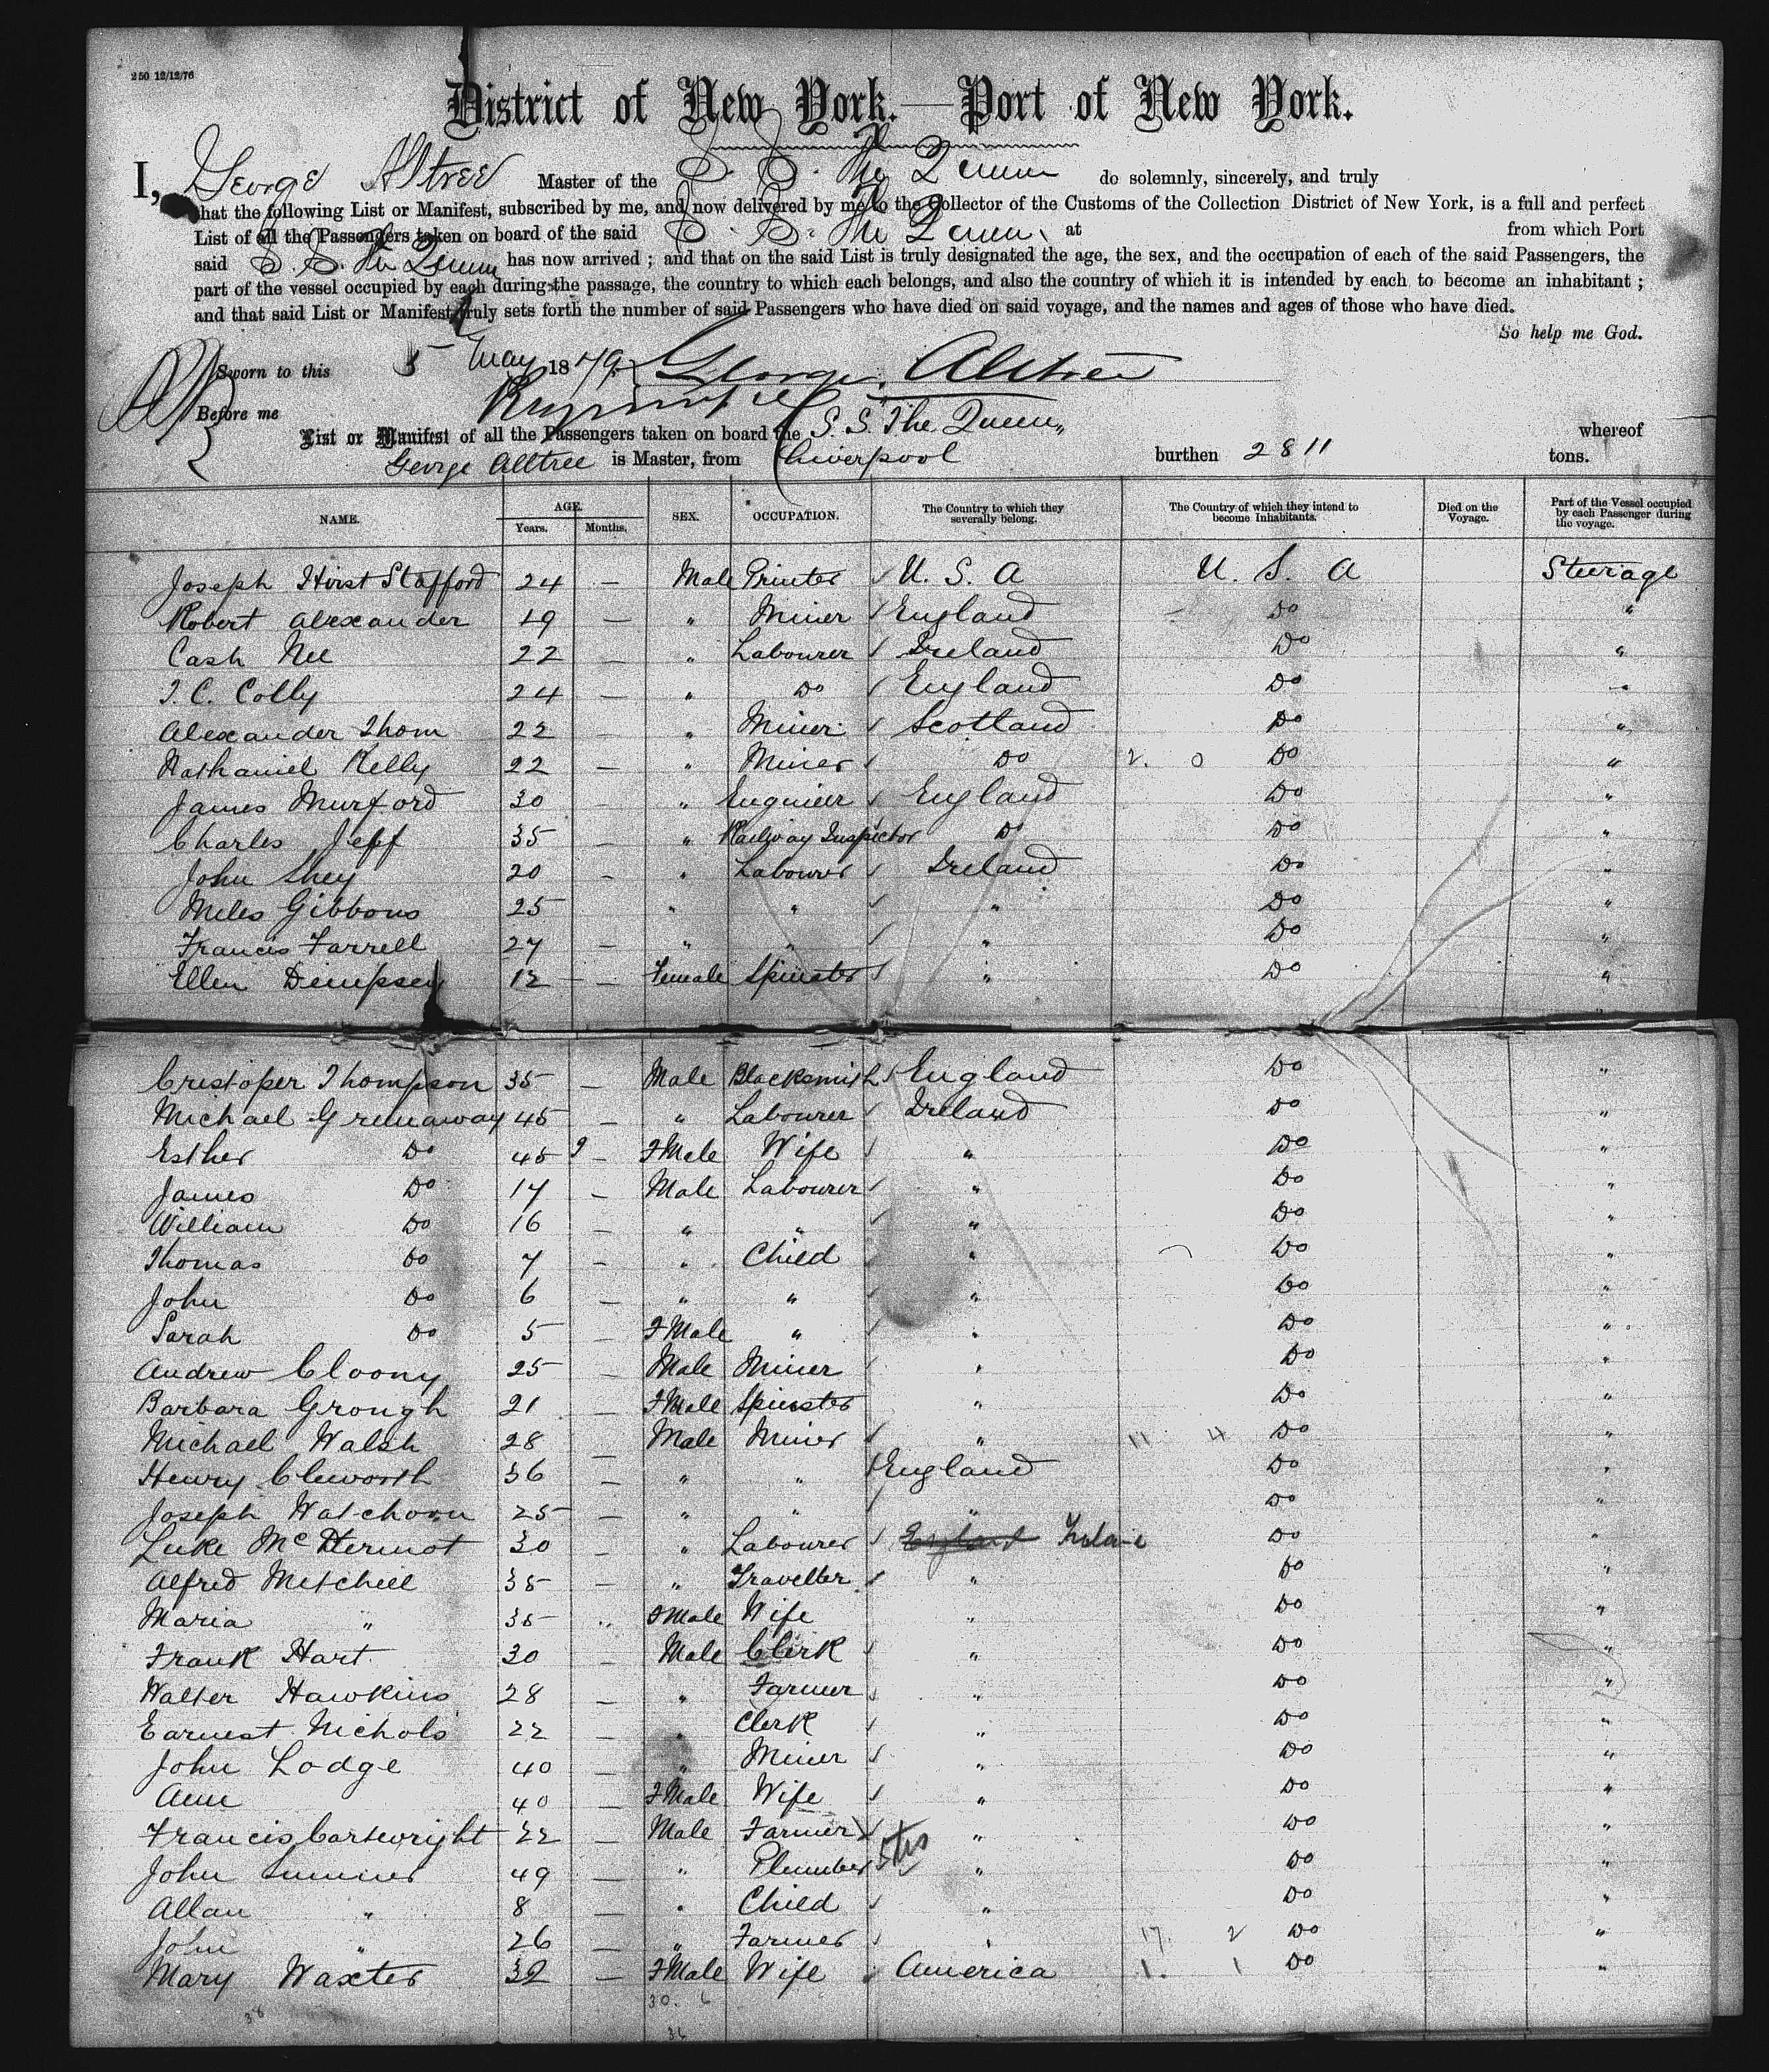 250 12/12/76
District of New York.—Port of New York.
I, George Alltree Master of the S. S. The Queen do solemnly, sincerely, and truly
that the following List or Manifest, subscribed by me, and now delivered by me to the Collector of the Customs of the Collection District of New York, is a full and perfect
List of all the Passengers taken on board of the said S. S. The Queen at from which Port
said S. S. The Queen has now arrived ; and that on the said List is truly designated the age, the sex, and the occupation of each of the said Passengers, the
part of the vessel occupied by each during the passage, the country to which each belongs, and also the country of which it is intended by each to become an inhabitant ;
and that said List or Manifest truly sets forth the number of said Passengers who have died on said voyage, and the names and ages of those who have died.
So help me God.
Sworn to this 5 May 1879 George Alltree
Before me
List or Manifest of all the Passengers taken on board the S. S. The Queen„ whereof
George Alltree is Master, from Liverpool burthen 2811 tons.
NAME. AGE. Years. Months. SEX. OCCUPATION. The Country to which they severally belong. The Country of which they intend to become Inhabitants. Died on the Voyage. Part of the Vessel occupied by each Passenger during the voyage.
Joseph Hirst Stafford 24 — Male Printer U. S. A U. S. A Steerage
Robert Alexander 19 — " Miner England Do "
Cash Nee 22 — " Labourer Ireland Do "
T. C. Colly 24 — " Do England Do "
Alexander Thom 22 — " Miner Scotland Do "
Nathaniel Kelly 22 — " Miner Do 2. 0 Do "
James Murford 30 — " Engineer England Do "
Charles Jeff 35 — " Railway Inspector Do Do "
John Shey 20 — " Labourer Ireland Do "
Miles Gibbons 25 " " " Do "
Francis Farrell 27 — " " " Do "
Ellen Dempsey 12 — Female Spinster " Do "
Cristoper Thompson 35 — Male Blacksmith England Do "
Michael Greenaway 45 — " Labourer Ireland Do "
Esther Do 45 — FMale Wife " Do "
James Do 17 — Male Labourer " Do "
William Do 16 — " " " Do "
Thomas Do 7 — " Child " Do "
John Do 6 — " " " Do "
Sarah Do 5 — FMale " " Do "
Andrew Cloony 25 — Male Miner " Do "
Barbara Grough 21 — FMale Spinster " Do "
Michael Walsh 28 — Male Miner " 11 4 Do "
Henry Cleworth 36 — " " England Do "
Joseph Watchorn 25 — " " " Do "
Luke McDermot 30 — " Labourer England Ireland Do "
Alfred Mitchell 35 — " Traveller " Do "
Maria " 35 " FMale Wife " Do "
Frank Hart 30 — Male Clerk " Do "
Walter Hawkins 28 — " Farmer " Do "
Earnest Nichols 22 — " Clerk " Do "
John Lodge 40 — " Miner " Do "
Ann 40 — FMale Wife " Do "
Francis Cartwright 22 — Male Farmer " Do "
John Sumner 49 — " Plumber " Do "
Allan " 8 — " Child " Do "
John " 26 — " Farmer " 17. 2 Do "
Mary Waxter 32 — FMale Wife America 1. 1 Do "
30. 6
38
36